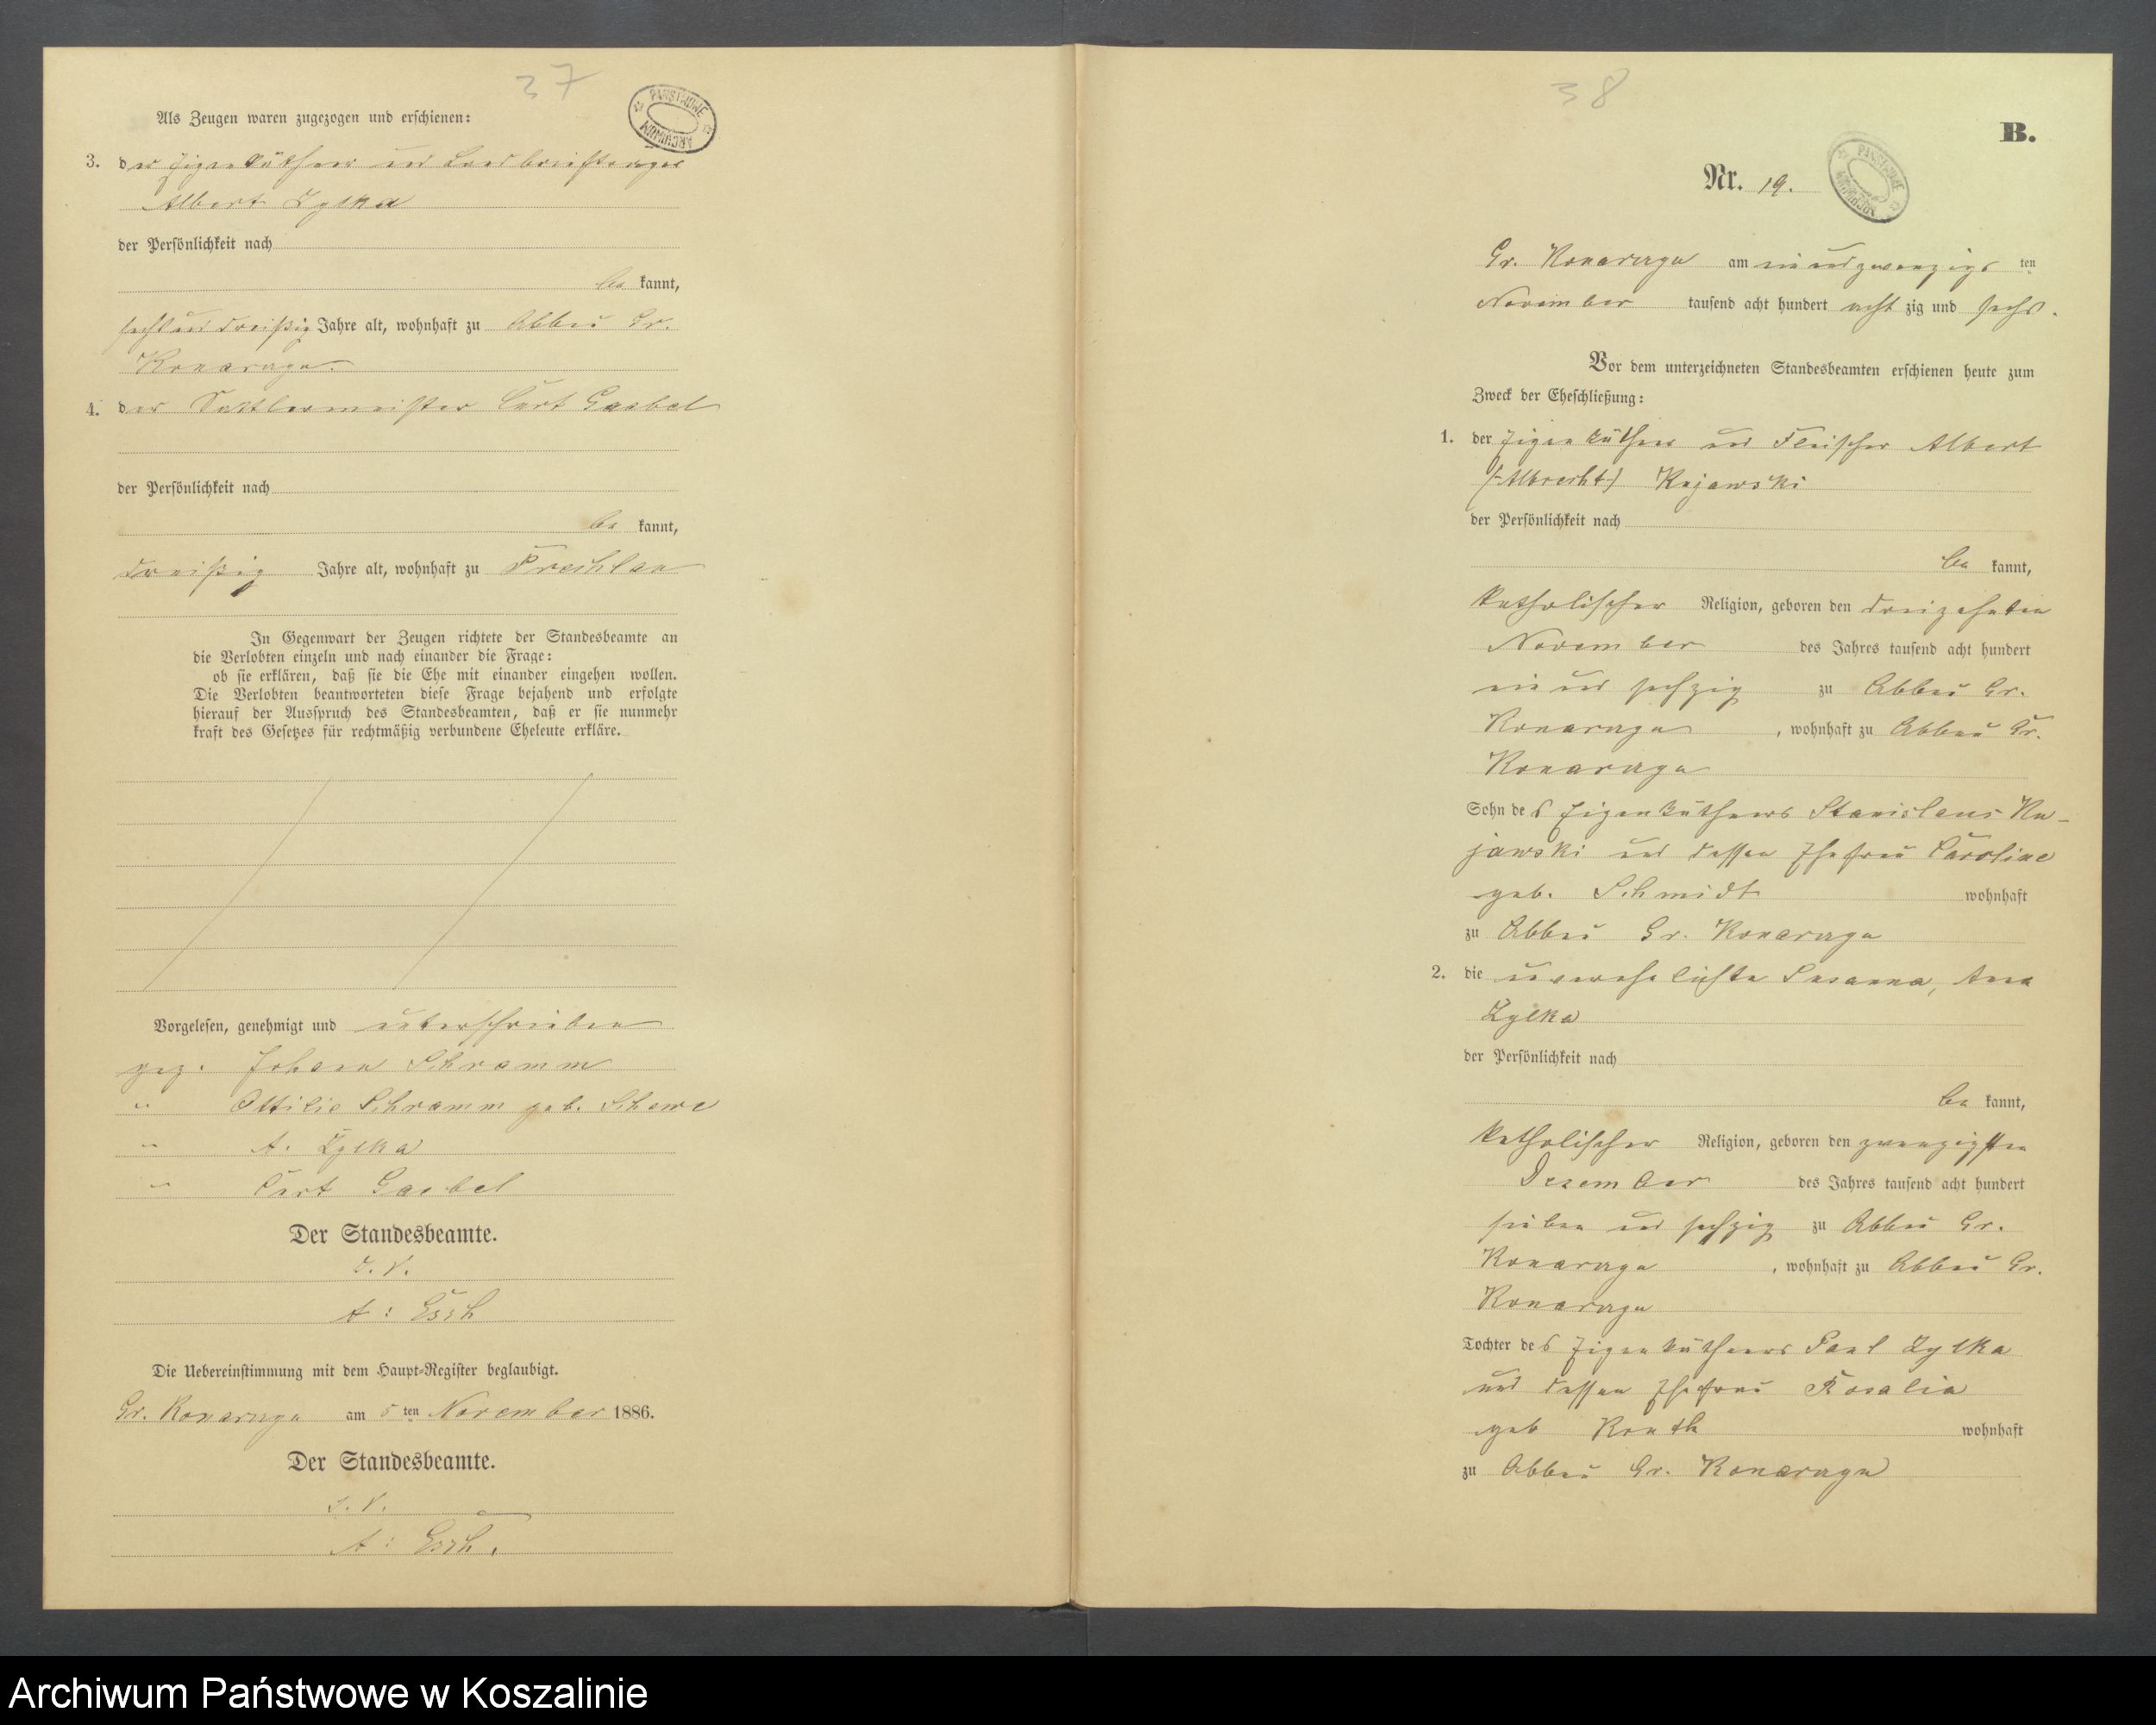 37
PAŃSTWOWE ARCHIWUM
Als Zeugen waren zugezogen und erschienen:
3. der Eigenkäthner und Landbriefträger
Albert Zylka
der Persönlichkeit nach
be kannt,
sechsunddreißig Jahre alt, wohnhaft zu Abbau Gr.
Konarczyn.
4. der Sattlermeister Curt Gaebel
der Persönlichkeit nach
be kannt,
dreißig Jahre alt, wohnhaft zu Prechlau
In Gegenwart der Zeugen richtete der Standesbeamte an
die Verlobten einzeln und nach einander die Frage:
ob sie erklären, daß sie die Ehe mit einander eingehen wollen.
Die Verlobten beantworteten diese Frage bejahend und erfolgte
hierauf der Ausspruch des Standesbeamten, daß er sie nunmehr
kraft des Gesetzes für rechtmäßig verbundene Eheleute erkläre.
Vorgelesen, genehmigt und unterschrieben
gez. Johann Schramm
" Ottilie Schramm geb. Schewe
" A. Zylka
" Curt Gaebel
Der Standesbeamte.
I. V.
A: Esch
Die Uebereinstimmung mit dem Haupt-Register beglaubigt.
Gr. Konarczyn am 5 ten November 1886.
Der Standesbeamte.
I. V.
A: Esch.
38
B.
Nr. 19.
PAŃSTWOWE ARCHIWUM
Gr. Konarczyn am einundzwanzigs ten
November tausend acht hundert acht zig und sechs.
Vor dem unterzeichneten Standesbeamten erschienen heute zum
Zweck der Eheschließung:
1. der Eigenkäthner und Fleischer Albert
(Albrecht) Kujawski
der Persönlichkeit nach
be kannt,
katholischer Religion, geboren den dreizehnten
November des Jahres tausend acht hundert
ein und sechzig zu Abbau Gr.
Konarczyn, wohnhaft zu Abbau Gr.
Konarczyn
Sohn des Eigenkäthners Stanislaus Ku-
jawski und dessen Ehefrau Caroline
geb. Schmidt wohnhaft
zu Abbau Gr. Konarczyn
2. die unverehelichte Susanna, Anna
Zylka
der Persönlichkeit nach
be kannt,
katholischer Religion, geboren den zwanzigsten
Dezember des Jahres tausend acht hundert
sieben und sechzig zu Abbau Gr.
Konarczyn, wohnhaft zu Abbau Gr.
Konarczyn
Tochter des Eigenkäthners Paul Zylka
und dessen Ehefrau Rosalia
geb wohnhaft
zu Abbau Gr. Konarczyn
Archiwum Państwowe w Koszalinie